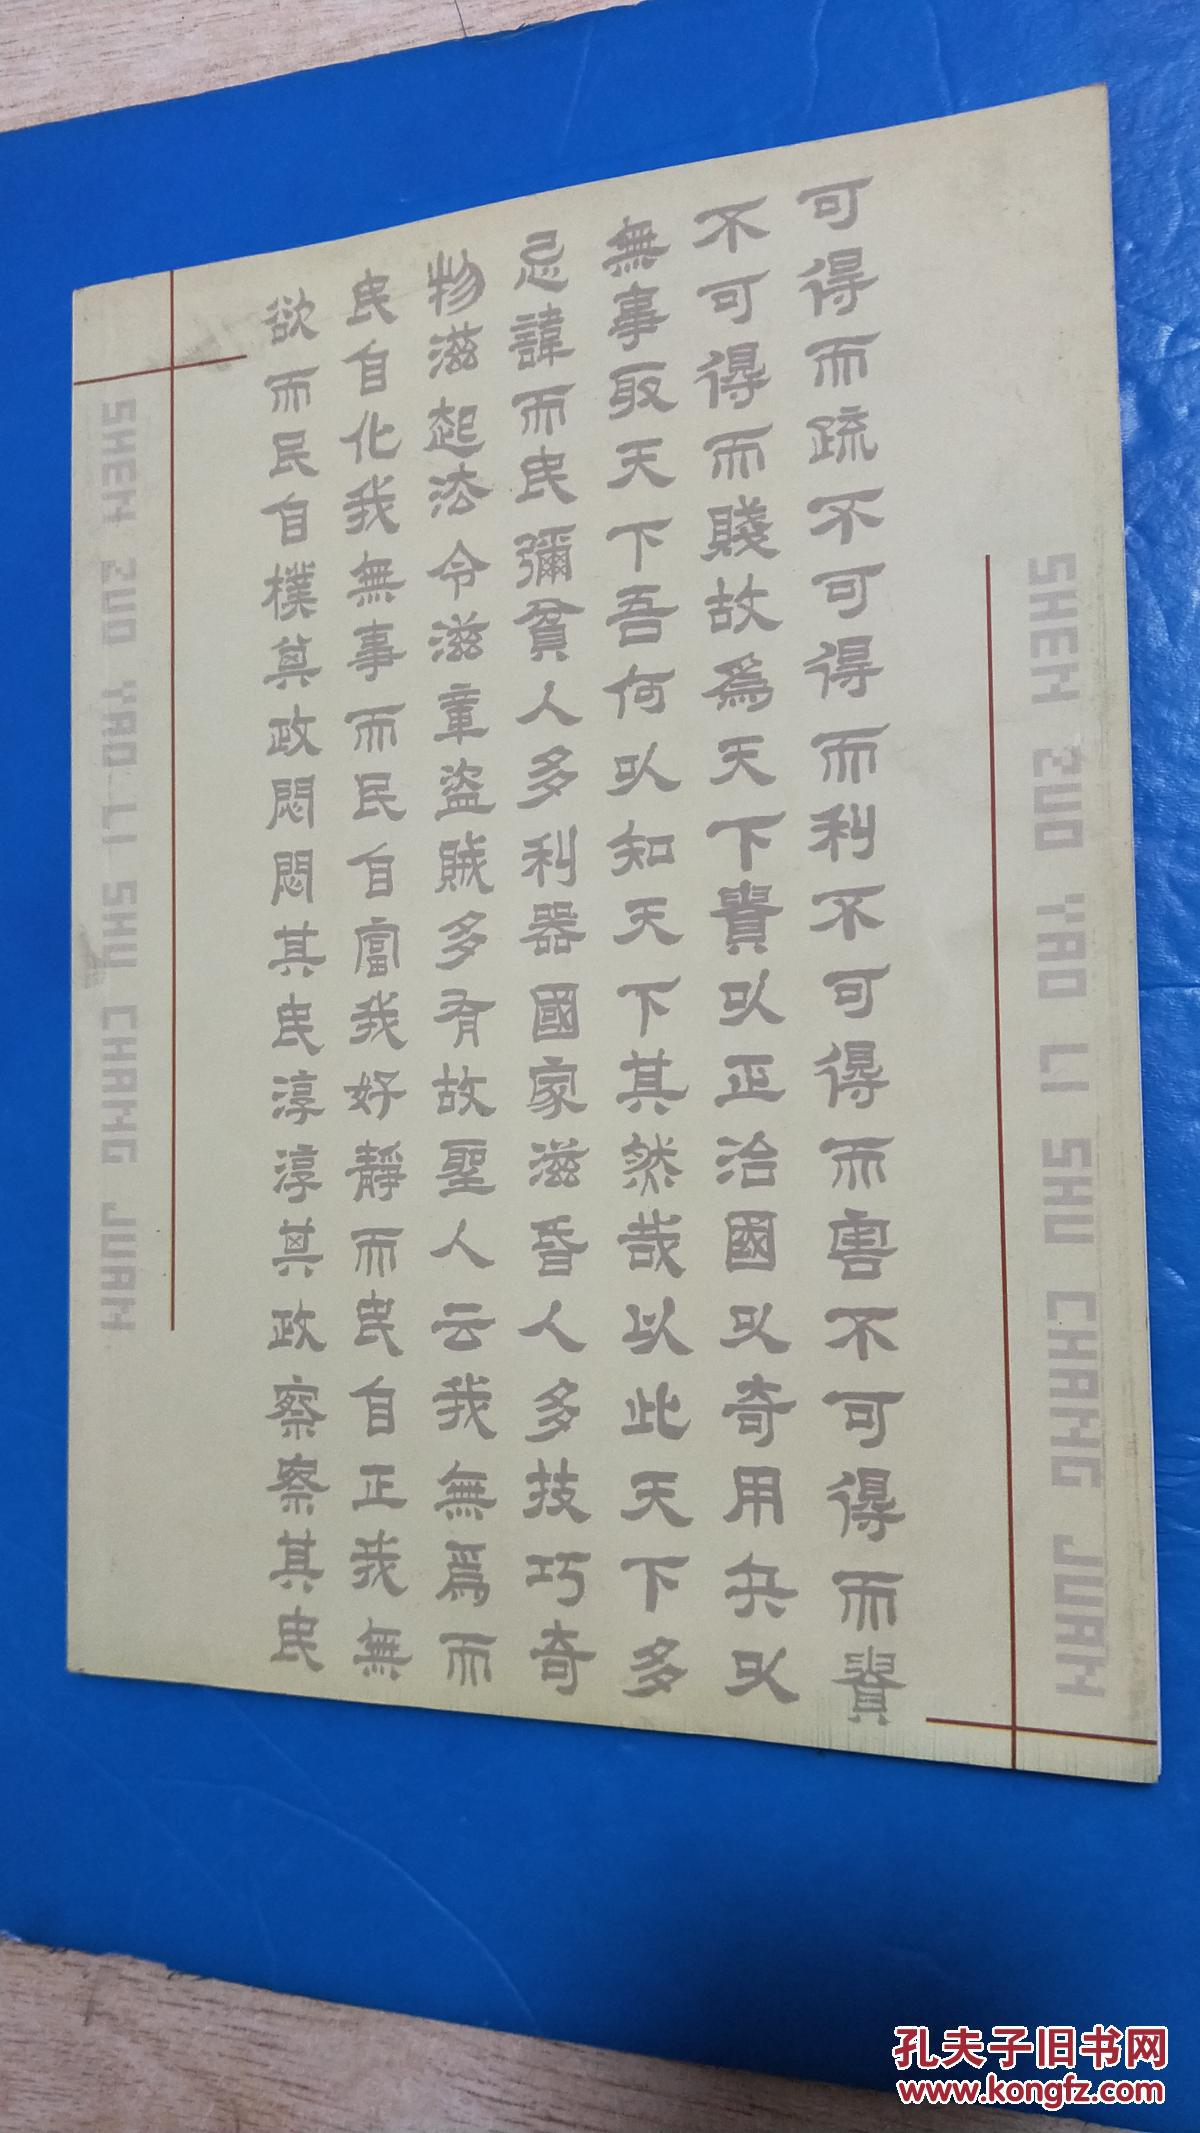 可得而疏不可得而利不可得而害不可得而貴
不可得而賤故為天下貴以正治國以奇用兵以
無事取天下吾何以知天下其然哉以此天下多
忌諱而民彌貧人多利器國家滋昏人多技巧奇
物滋起法令滋章盜賊多有故聖人云我無為而
民自化我無事而民自富我好靜而民自正我無
欲而民自樸其政悶悶其民淳淳其政察察其民
SHEN ZUO YAO LI SHU CHANG JUAN
SHEN ZUO YAO LI SHU CHANG JUAN
孔夫子旧书网
www.kongfz.com